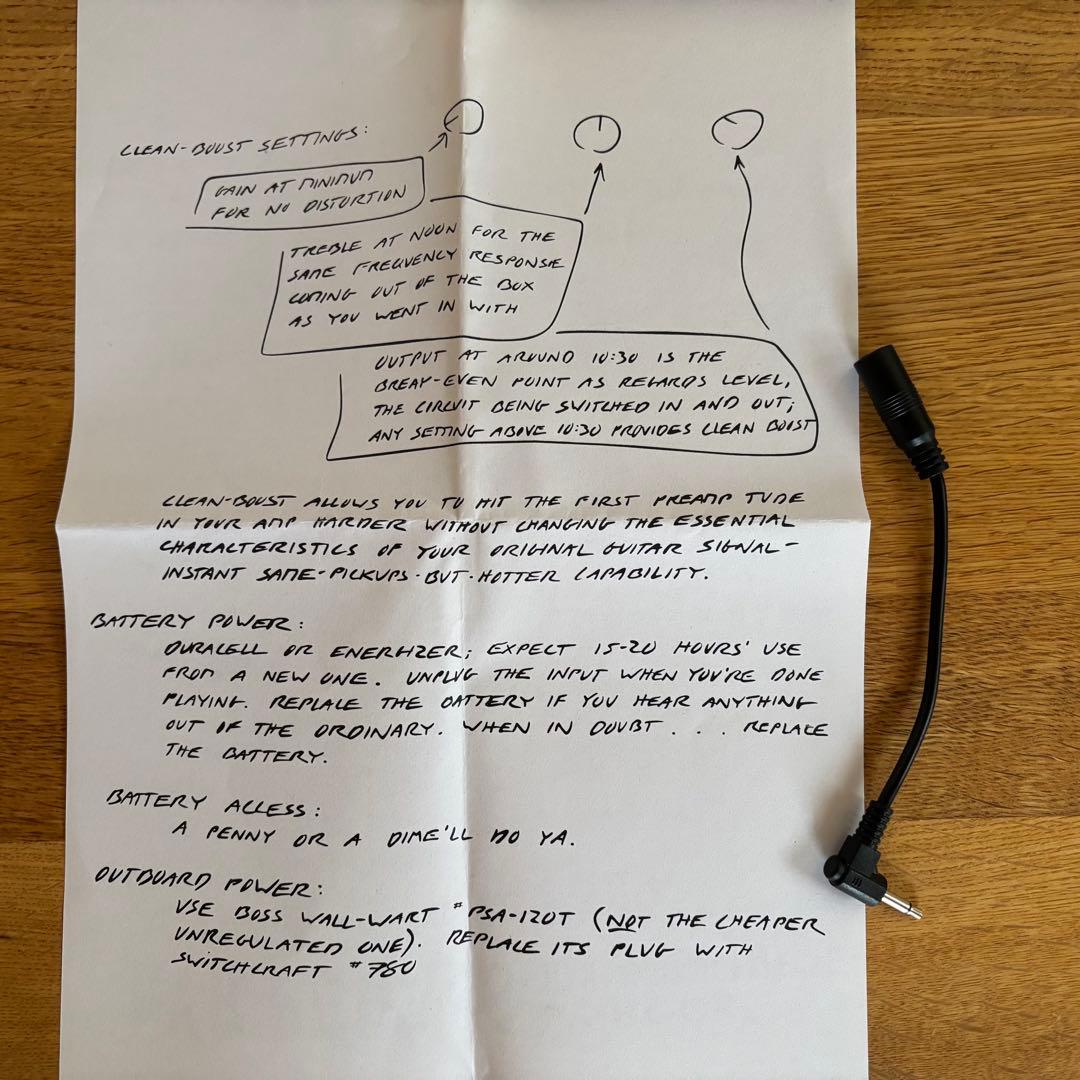 CLEAN-BOOST SETTINGS:
GAIN AT MINIMUM
FOR NO DISTORTION
TREBLE AT NOON FOR THE
SAME FREQUENCY RESPONSE
COMING OUT OF THE BOX
AS YOU WENT IN WITH
OUTPUT AT AROUND 10:30 IS THE
BREAK-EVEN POINT AS REGARDS LEVEL,
THE CIRCUIT BEING SWITCHED IN AND OUT;
ANY SETTING ABOVE 10:30 PROVIDES CLEAN BOOST
CLEAN-BOOST ALLOWS YOU TO HIT THE FIRST PREAMP TUBE
IN YOUR AMP HARDER WITHOUT CHANGING THE ESSENTIAL
CHARACTERISTICS OF YOUR ORIGINAL GUITAR SIGNAL-
INSTANT SAME-PICKUPS-BUT-HOTTER CAPABILITY.
BATTERY POWER:
DURACELL OR ENERGIZER; EXPECT 15-20 HOURS' USE
FROM A NEW ONE. UNPLUG THE INPUT WHEN YOU'RE DONE
PLAYING. REPLACE THE BATTERY IF YOU HEAR ANYTHING
OUT OF THE ORDINARY. WHEN IN DOUBT . . . REPLACE
THE BATTERY.
BATTERY ACCESS:
A PENNY OR A DIME'LL DO YA.
OUTBOARD POWER:
USE BOSS WALL-WART #PSA-120T (NOT THE CHEAPER
UNREGULATED ONE). REPLACE ITS PLUG WITH
SWITCHCRAFT #780